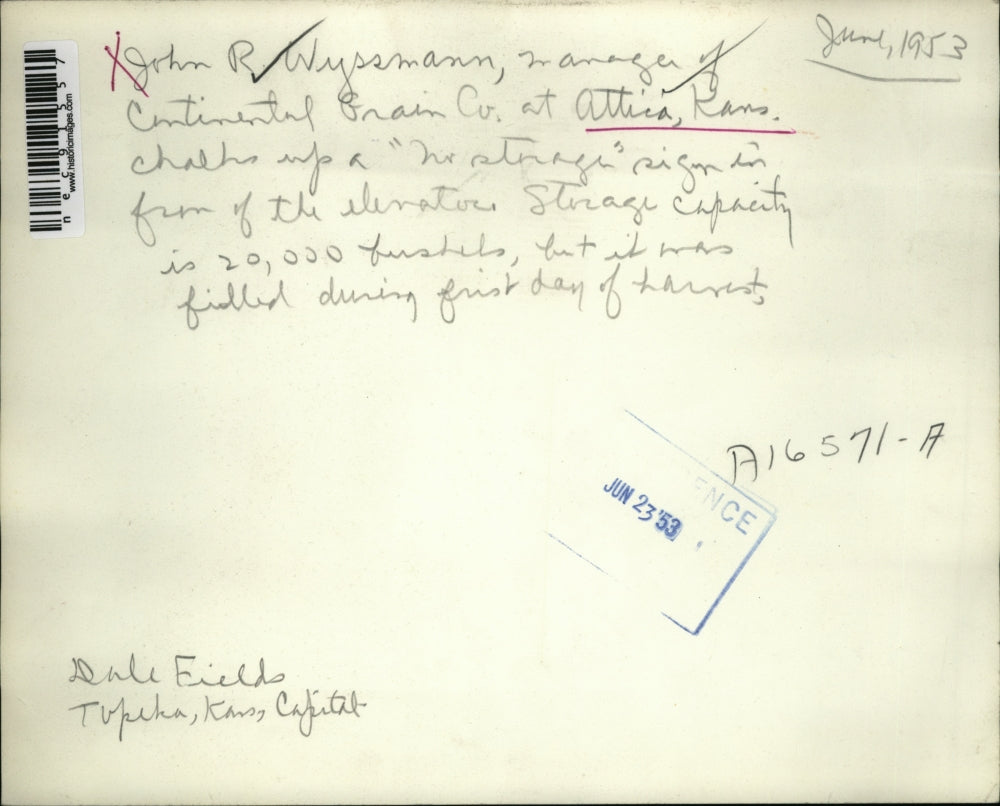 June, 1953
John R. Wyssmann, manager of
Continental Grain Co. at Attica, Kans.
chalks up a "no storage" sign in
fron of the elevator. Storage capacity
is 20,000 bushels, but it was
filled during first day of harvest.
nec91557
www.historicimages.com
A16571-A
ENCE
JUN 23 '53
Dale Fields
Topeka, Kans, Capital